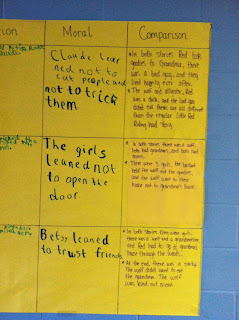 Moral
Comparison
Claude lear
ned not to
eat people and
not to trick
them
• In both stories Red took
goodies to Grandma, there
was a bad guy, and they
lived happily ever after.
• The wolf and
was a duck, and the bad guy
didn't eat them are all different
than the regular Little Red
Riding Hood Story.
The girls
leaned not
to open the
door
• In both stories there was a wolf,
both had grandmas, and both had
• There were 3 girls, the
the wolf not the
and the wolf came to their
house not to grandma's house.
Betsy leaned
to trust friends
• In both stories there were girls,
there was a wolf and a grandmother,
and Red had to go to grandmas
house through the
• At the end, there was a party.
The wolf didn't want to eat
the grandma. The wolf
was kind not mean.